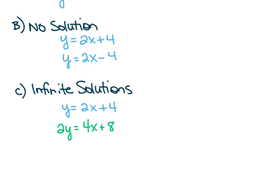 B) No Solution
y = 2x + 4
y = 2x - 4
c) Infinite Solutions
y = 2x + 4
2y = 4x + 8